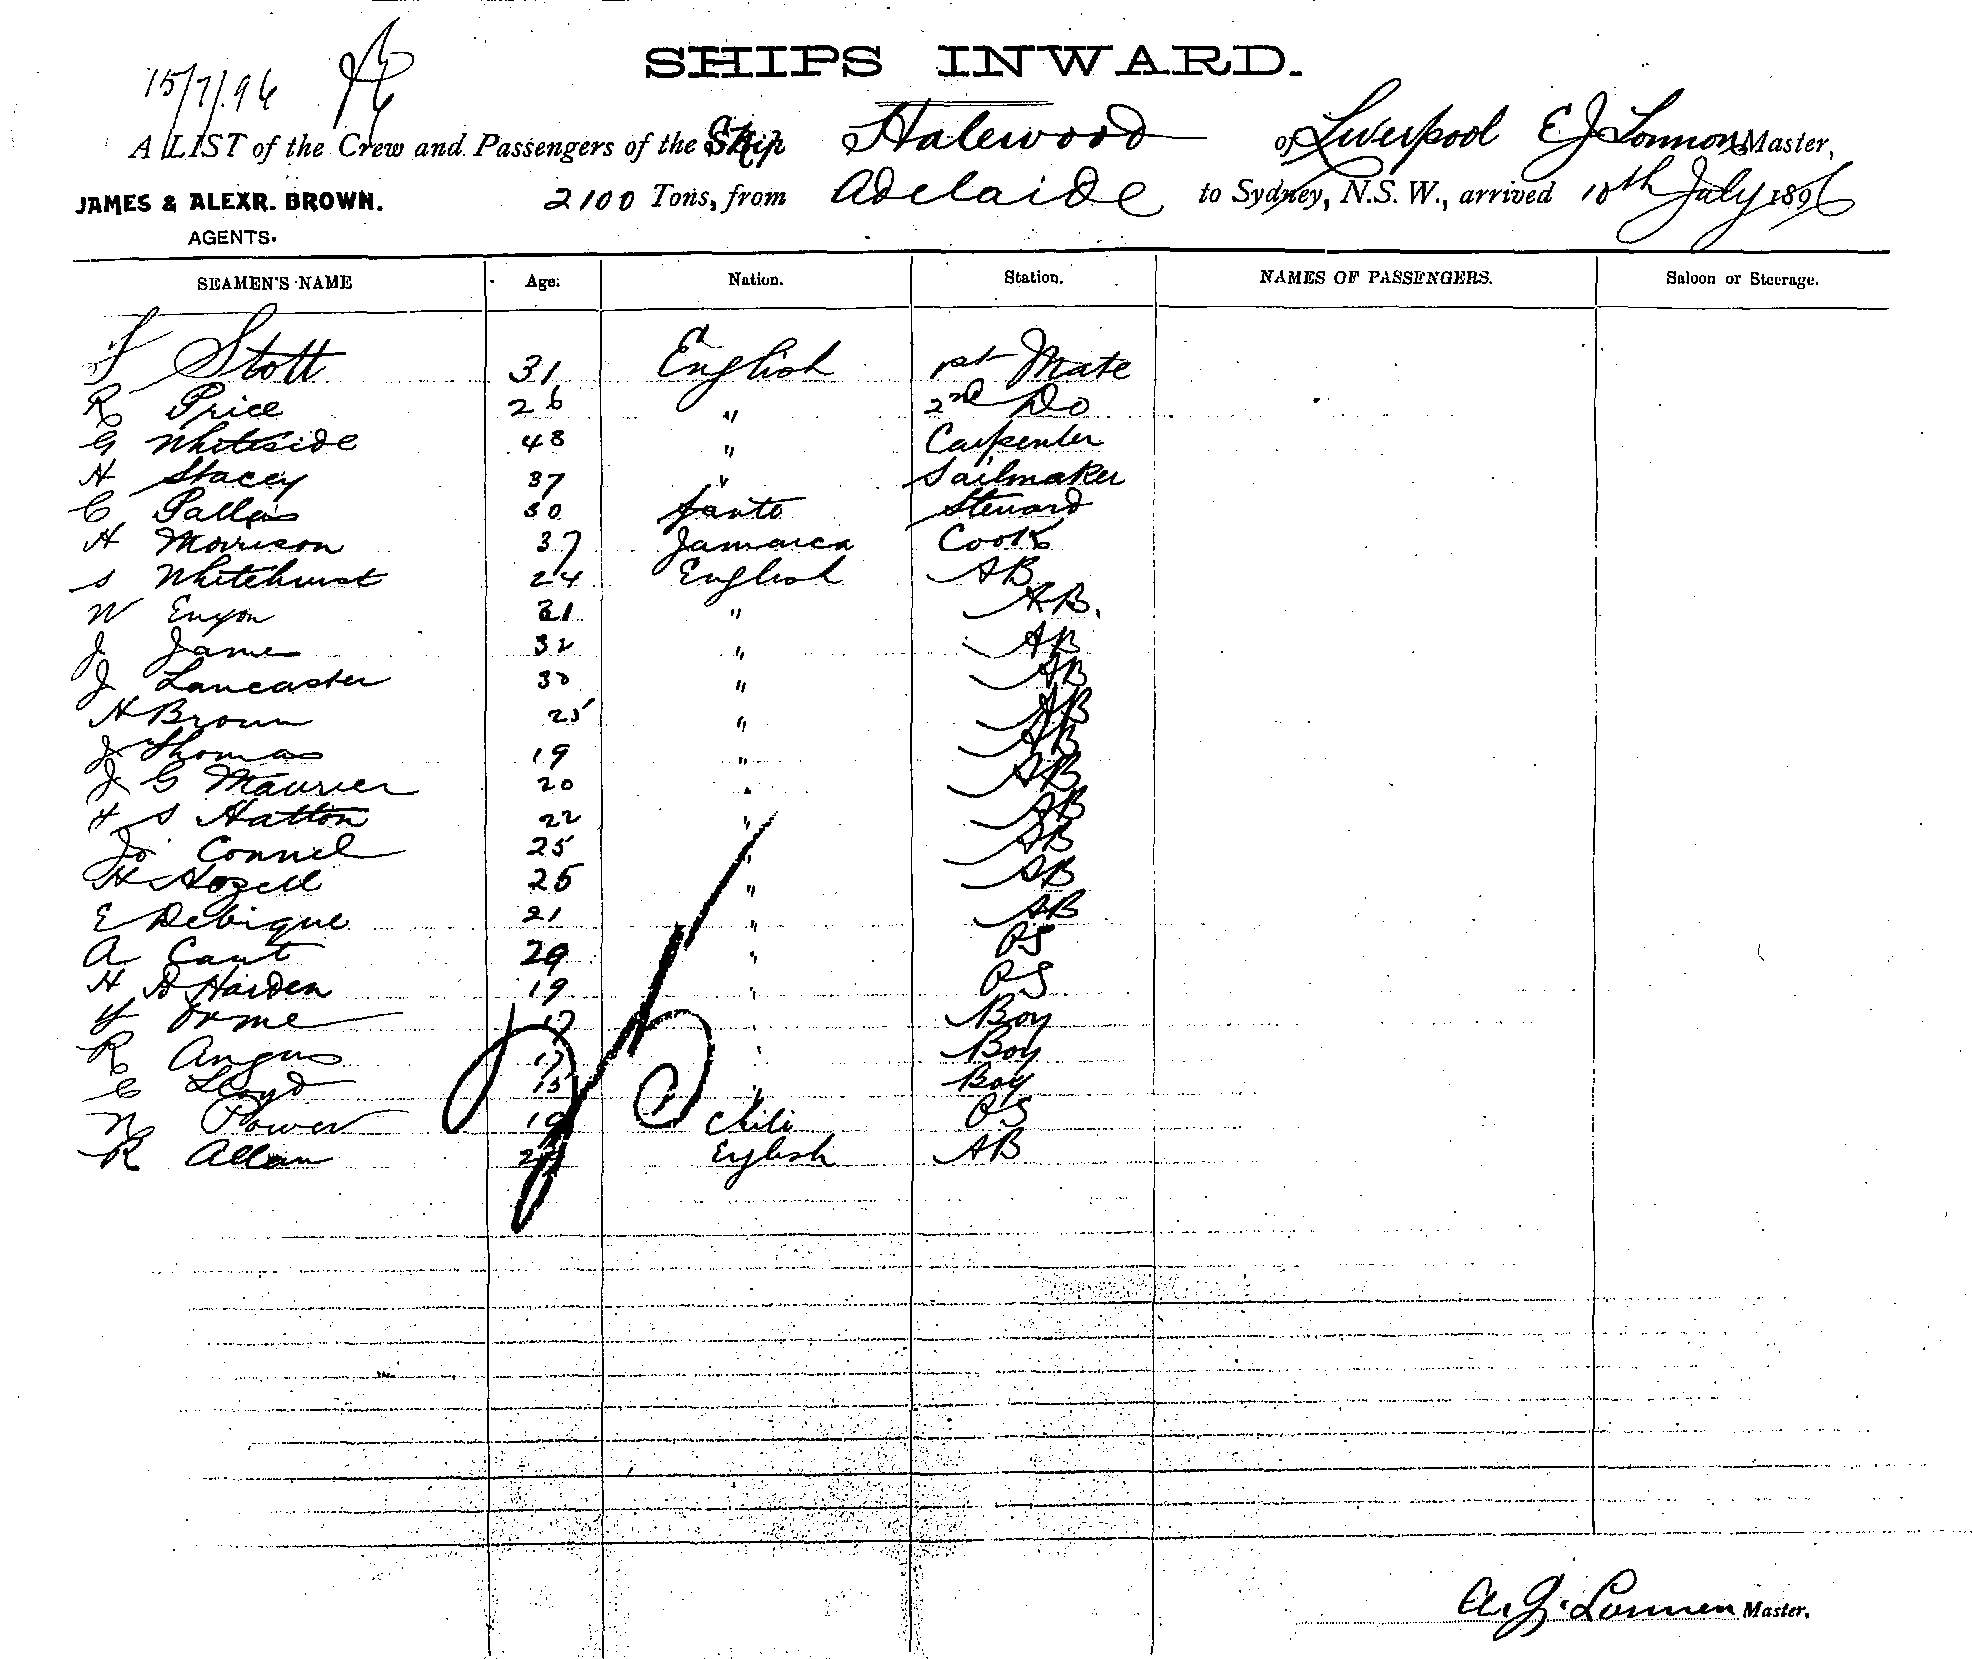 SHIPS INWARD.
15/7/96
A LIST of the Crew and Passengers of the Ship Halewood of Liverpool E J Lonnon Master,
JAMES & ALEXR. BROWN. 2100 Tons, from Adelaide to Sydney, N.S.W., arrived 10th July 1896
AGENTS.
SEAMEN'S NAME Age. Nation. Station. NAMES OF PASSENGERS. Saloon or Steerage.
Stott 31 English 1st Mate
R Price 26 " 2nd Do
G Whiteside 48 " Carpenter
H Stacey 37 " Sailmaker
C 30 Steward
H Morrison 37 Jamaica Cook
S Whitehurst 24 English AB
W 21 " AB.
J James 32 " AB
J Lancaster 30 " AB
H Brown 25 " AB
J Thomas 19 " AB
J G Maurier 20 " AB
H S Hatton 22 " AB
Jo Connel 25 " AB
H Hozell 25 " AB
E Debique 21 " AB
A Cant 29 " OS
H D Harden 19 " OS
Orme 17 " Boy
R Angus 17 " Boy
C Lloyd 15 " Boy
N Power 19 Chili OS
R Allan English AB
A. J. Lonnen Master.